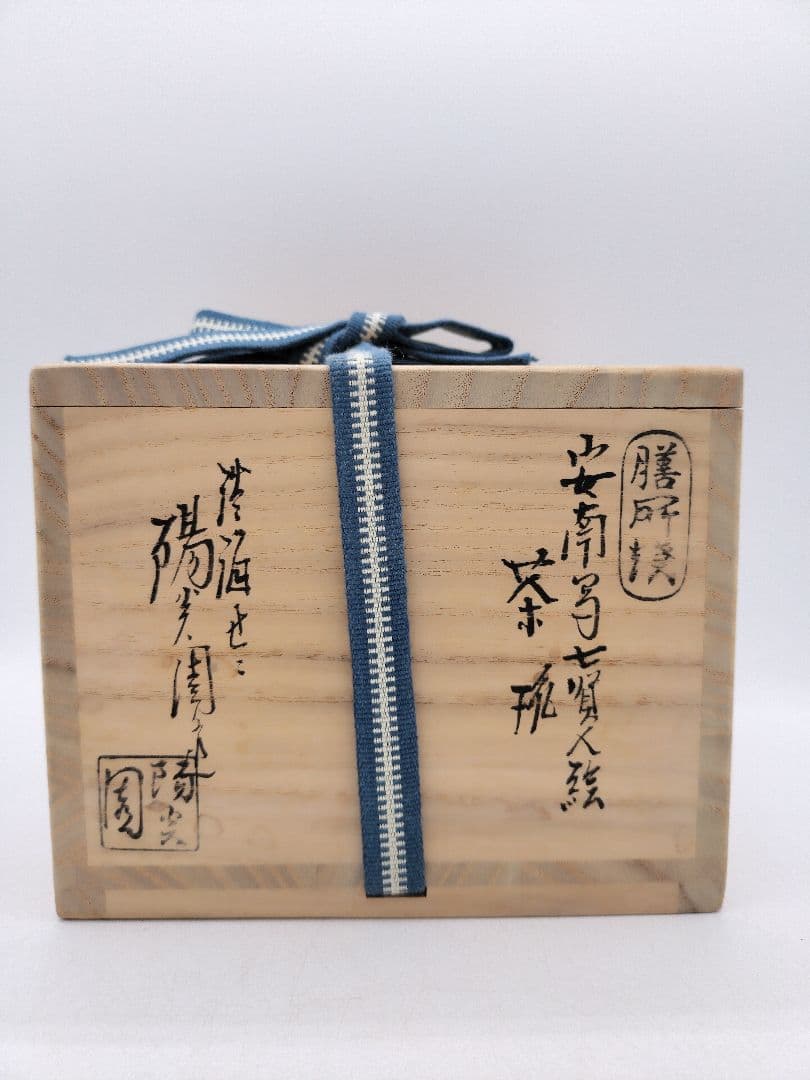 膳所焼
安南写七賢人絵
茶碗
淡海せゝ
陽炎園造
陽炎園